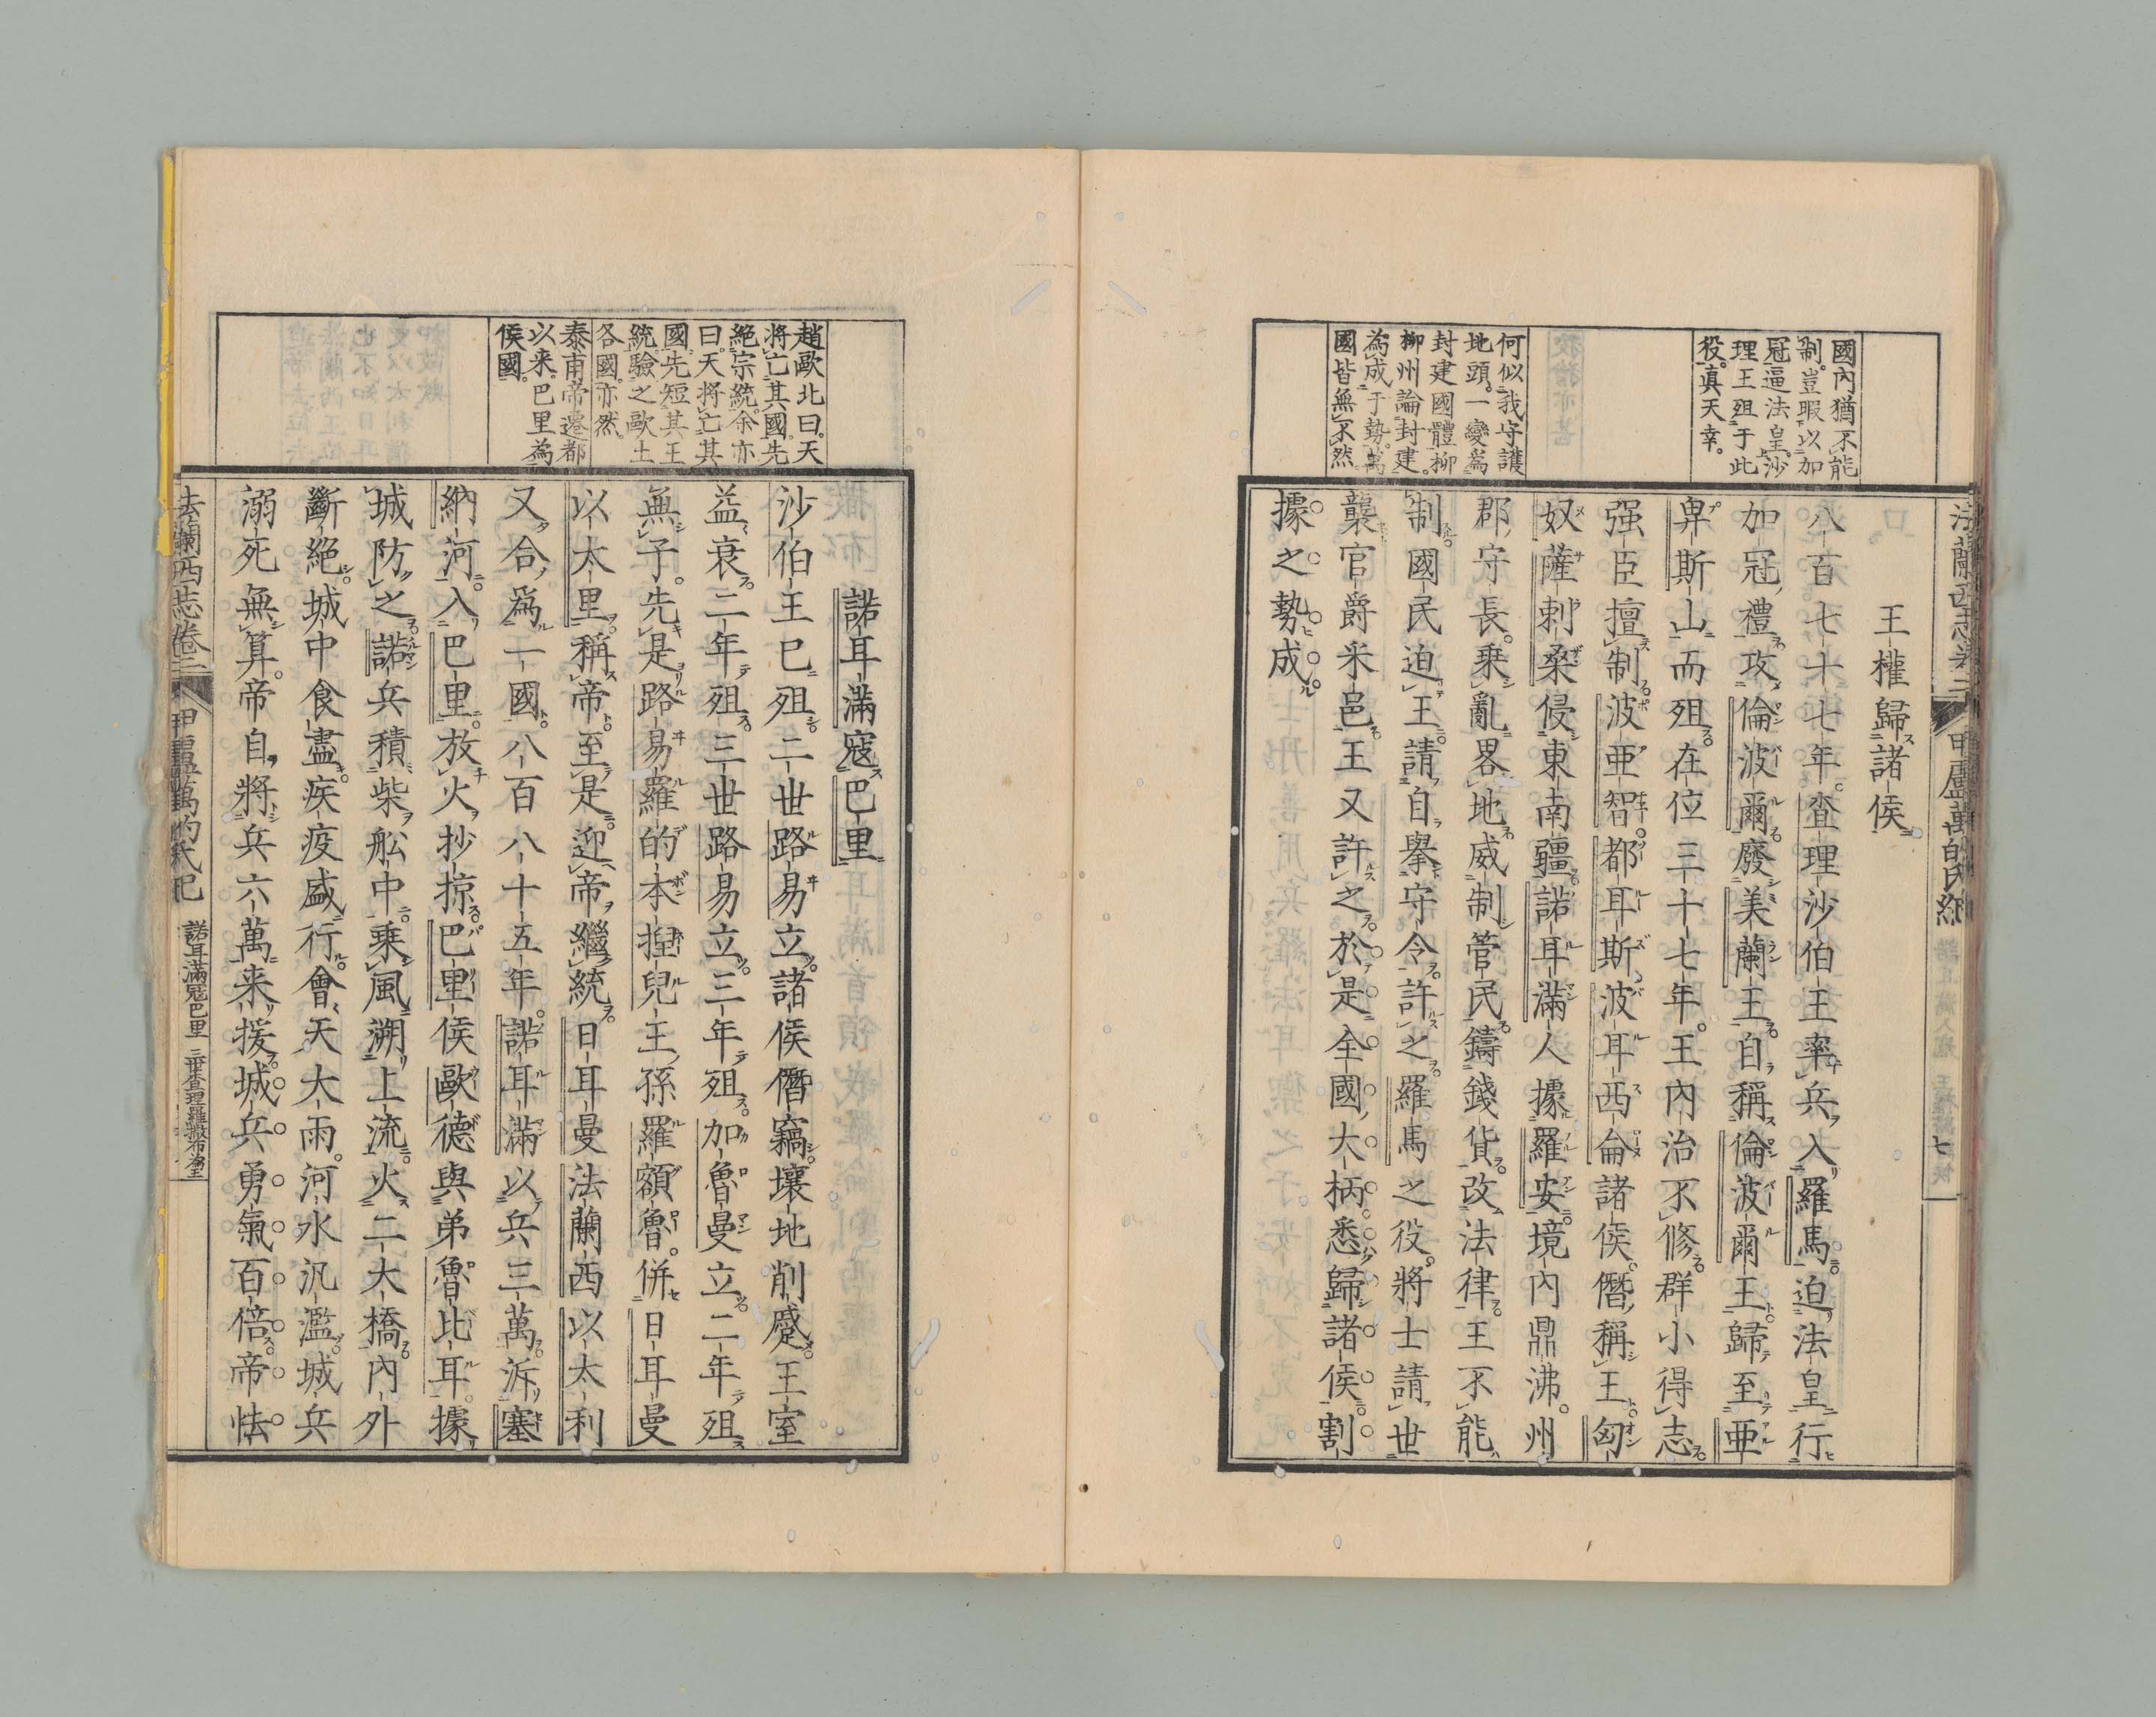 國內猶不能
制。豈暇以加
冠逼法皇。沙
理王殂于此
役。真天幸。
何似我守護
地頭。一變為
封建國體。柳
柳州論封建。
為成于勢。萬
國皆無不然。
王權歸諸侯
八百七十七年。查理沙伯王率兵入羅馬。迫法皇行
加冠禮。攻倫波爾廢美蘭王。自稱倫波爾王。歸至亜
卑斯山而殂。在位三十七年。王內治不修。群小得志。
强臣擅制。波亜智都耳斯波耳西侖諸侯。僭稱王。匈
奴薩剌桑侵東南疆。諾耳滿人據羅安。境內鼎沸。州
郡守長。乘亂畧地。威制管民。鑄錢貨。改法律。王不能
制。國民迫王。請自舉守令。許之。羅馬之役。將士請世
襲官爵米邑。王又許之。於是全國大柄。悉歸諸侯。割
據之勢成。
趙歐北曰。天
將亡其國。先
絕宗統。余亦
曰。天將亡其
國。先短其王
統。驗之歐土
各國。亦然。
泰甫帝遷都
以来。巴里為
侯國。
諾耳滿寇巴里
沙伯王已殂。二世路易立。諸侯僭竊。壤地削蹙。王室
益衰。二年殂。三世路易立。三年殂。加魯曼立。二年殂。
無子。先是路易羅的本揑兒王孫羅額魯。併日耳曼
以太里。稱帝。至是迎帝繼統。日耳曼法蘭西以太利
又合為一國。八百八十五年。諾耳滿以兵三萬泝塞
納河。入巴里。放火抄掠。巴里侯歐德與弟魯比耳。據
城防之。諾兵積柴船中。乘風溯上流。火二大橋。內外
斷絕。城中食盡。疾疫盛行。會天大雨。河水汎濫。城兵
溺死無算。帝自將兵六萬来援。城兵勇氣百倍。帝怯
法蘭西志卷二
諾耳滿寇巴里